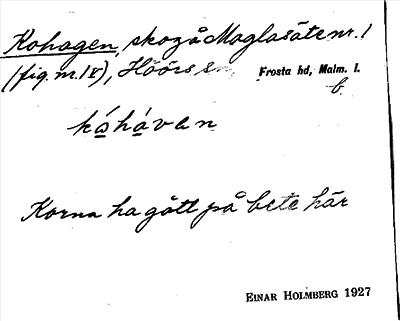 Kohagen, skog å Maglasäte nr. 1
(fig. nr. 18), Höörs sn, Frosta hd, Malm. l.
b.
kåhåvan
Korna ha gått på bete här
EINAR HOLMBERG 1927